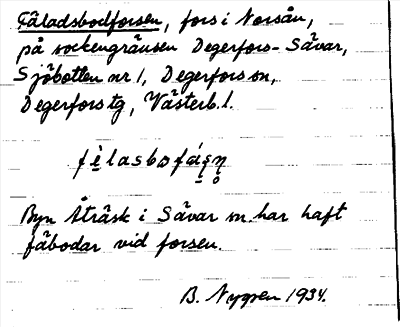 Fäladsbodforsen, fors i Norsån,
på sockengränsen Degerfors-Sävar,
Sjöbotten nr 1, Degerfors sn,
Degerfors tg, Västerb. l.
Byn Åträsk i Sävar sn. har haft
fäbodar vid forsen.
B. Nygren 1934.